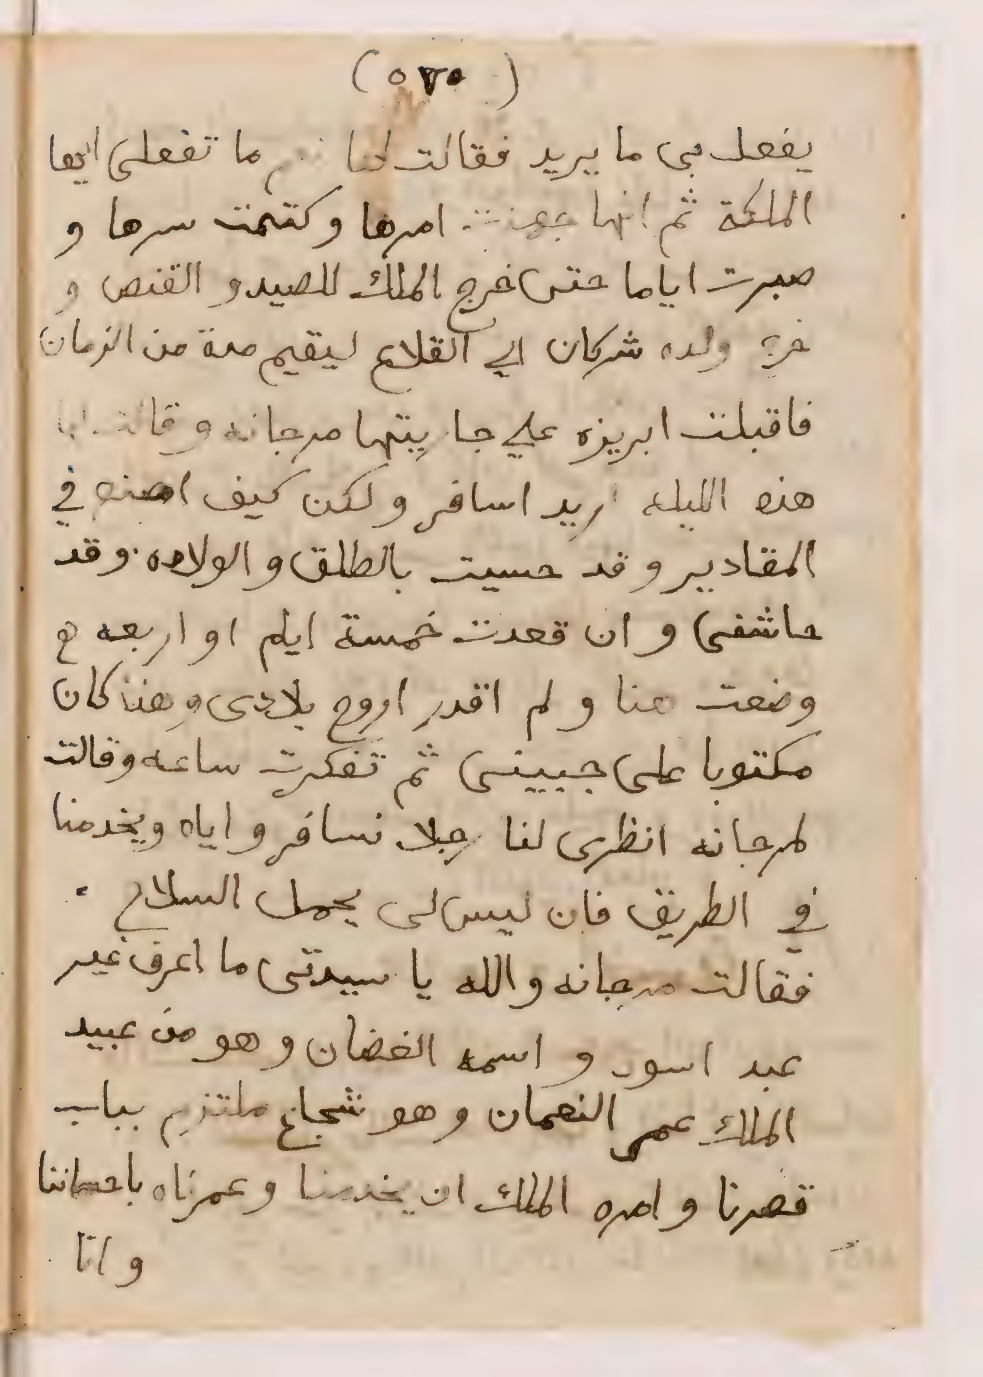 (٥٧٠)
يفعل بى ما يريد فقالت لها نعم ما تفعلى ايها
الملكة ثم انها جهزت امرها وكتمت سرها و
صبرت اياما حتى خرج الملك للصيد و القنص و
خرج ولده شركان الي القلاع ليقيم مدة من الزمان
فاقبلت ابريزه علي جاريتها مرجانه وقالت لها
هذه الليله اريد اسافر ولكن كيف اصنع في
المقادير وقد حسيت بالطلق و الولاده وقد
وان قعدت خمسة ايام او اربعه
وضعت هنا و لم اقدر اروح بلادى وهذا كان
مكتوبا على جبينى ثم تفكرت ساعه وقالت
لمرجانه انظرى لنا رجلا نسافر و اياه ويخدمنا
في الطريق فان ليس لى يحمل السلاح
فقالت مرجانه والله يا سيدتى ما اعرف غير
عبد اسود و اسمه الغضبان وهو من عبيد
الملك عمر النعمان وهو شجاع ملتزم بباب
قصرنا و امره الملك ان يخدمنا وعمرناه باحساننا
وانا